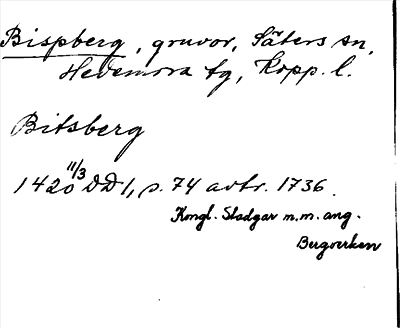 Bispberg, gruvor, Säters sn,
Hedemora tg, Kopp. l.
Bitsberg
1420 11/3 DD 1, s. 74 avtr. 1736.
Kongl. Stadgar m.m. ang.
Bergverken